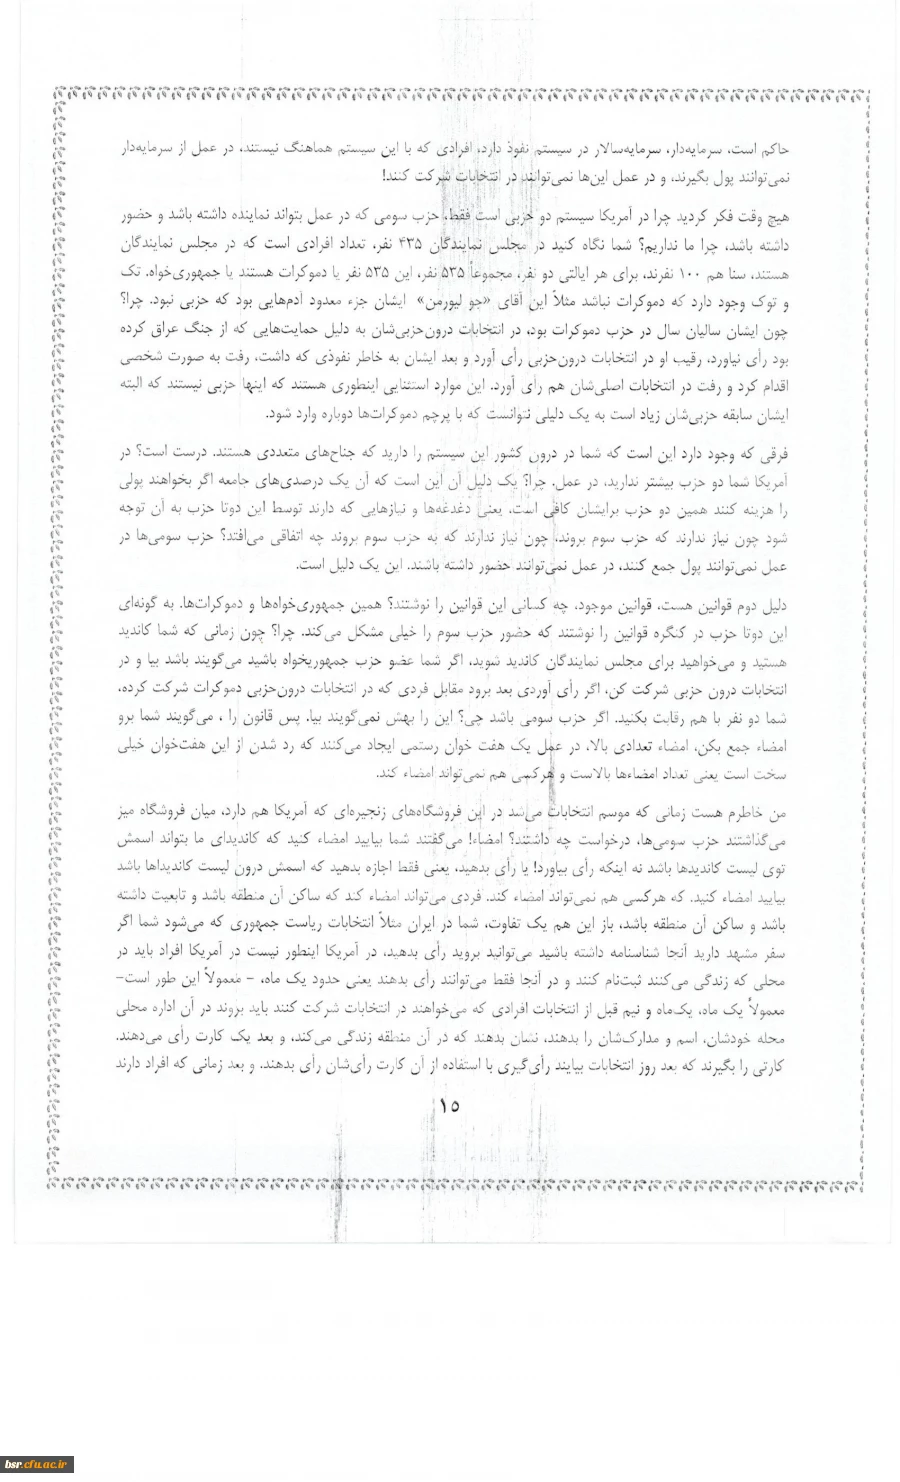 حاکم است، سرمایه‌دار، سرمایه‌سالار در سیستم نفوذ دارد، افرادی که با این سیستم هماهنگ نیستند، در عمل از سرمایه‌دار
نمی‌توانند پول بگیرند، و در عمل این‌ها نمی‌توانند در انتخابات شرکت کنند!
هیچ وقت فکر کردید چرا در آمریکا سیستم دو حزبی است فقط، حزب سومی که در عمل بتواند نماینده داشته باشد و حضور
داشته باشد، چرا ما نداریم؟ شما نگاه کنید در مجلس نمایندگان ۴۳۵ نفر، تعداد افرادی است که در مجلس نمایندگان
هستند، سنا هم ۱۰۰ نفرند، برای هر ایالتی دو نفر، مجموعاً ۵۳۵ نفر، این ۵۳۵ نفر یا دموکرات هستند یا جمهوری‌خواه. تک
و توک وجود دارد که دموکرات نباشد مثلاً این آقای «جو لیورمن» ایشان جزء معدود آدم‌هایی بود که حزبی نبود. چرا؟
چون ایشان سالیان سال در حزب دموکرات بود، در انتخابات درون‌حزبی‌شان به دلیل حمایت‌هایی که از جنگ عراق کرده
بود رأی نیاورد، رقیب او در انتخابات درون‌حزبی رأی آورد و بعد ایشان به خاطر نفوذی که داشت، رفت به صورت شخصی
اقدام کرد و رفت در انتخابات اصلی‌شان هم رأی آورد. این موارد استثنایی اینطوری هستند که اینها حزبی نیستند که البته
ایشان سابقه حزبی‌شان زیاد است به یک دلیلی نتوانست که با پرچم دموکرات‌ها دوباره وارد شود.
فرقی که وجود دارد این است که شما در درون کشور این سیستم را دارید که جناح‌های متعددی هستند. درست است؟ در
آمریکا شما دو حزب بیشتر ندارید، در عمل. چرا؟ یک دلیل آن این است که آن یک درصدی‌های جامعه اگر بخواهند پولی
را هزینه کنند همین دو حزب برایشان کافی است. یعنی دغدغه‌ها و نیازهایی که دارند توسط این دوتا حزب به آن توجه
شود چون نیاز ندارند که حزب سوم بروند، چون نیاز ندارند که به حزب سوم بروند چه اتفاقی می‌افتد؟ حزب سومی‌ها در
عمل نمی‌توانند پول جمع کنند، در عمل نمی‌توانند حضور داشته باشند. این یک دلیل است.
دلیل دوم قوانین هست، قوانین موجود، چه کسانی این قوانین را نوشتند؟ همین جمهوری‌خواه‌ها و دموکرات‌ها. به گونه‌ای
این دوتا حزب در کنگره قوانین را نوشتند که حضور حزب سوم را خیلی مشکل می‌کند. چرا؟ چون زمانی که شما کاندید
هستید و می‌خواهید برای مجلس نمایندگان کاندید شوید، اگر شما عضو حزب جمهوریخواه باشید می‌گویند باشد بیا و در
انتخابات درون حزبی شرکت کن، اگر رأی آوردی بعد برود مقابل فردی که در انتخابات درون‌حزبی دموکرات شرکت کرده،
شما دو نفر با هم رقابت بکنید. اگر حزب سومی باشد چی؟ این را بهش نمی‌گویند بیا. پس قانون را ، می‌گویند شما برو
امضاء جمع بکن، امضاء تعدادی بالا، در عمل یک هفت خوان رستمی ایجاد می‌کنند که رد شدن از این هفت‌خوان خیلی
سخت است یعنی تعداد امضاءها بالاست و هرکسی هم نمی‌تواند امضاء کند.
من خاطرم هست زمانی که موسم انتخابات می‌شد در این فروشگاه‌های زنجیره‌ای که آمریکا هم دارد، میان فروشگاه میز
می‌گذاشتند حزب سومی‌ها، درخواست چه داشتند؟ امضاء! می‌گفتند شما بیایید امضاء کنید که کاندیدای ما بتواند اسمش
توی لیست کاندیدها باشد نه اینکه رأی بیاورد! یا رأی بدهید، یعنی فقط اجازه بدهید که اسمش درون لیست کاندیداها باشد
بیایید امضاء کنید. که هرکسی هم نمی‌تواند امضاء کند. فردی می‌تواند امضاء کند که ساکن آن منطقه باشد و تابعیت داشته
باشد و ساکن آن منطقه باشد، باز این هم یک تفاوت، شما در ایران مثلاً انتخابات ریاست جمهوری که می‌شود شما اگر
سفر مشهد دارید آنجا شناسنامه داشته باشید می‌توانید بروید رأی بدهید، در آمریکا اینطور نیست در آمریکا افراد باید در
محلی که زندگی می‌کنند ثبت‌نام کنند و در آنجا فقط می‌توانند رأی بدهند یعنی حدود یک ماه، - معمولاً این طور است-
معمولاً یک ماه، یک‌ماه و نیم قبل از انتخابات افرادی که می‌خواهند در انتخابات شرکت کنند باید بروند در آن اداره محلی
محله خودشان، اسم و مدارک‌شان را بدهند، نشان بدهند که در آن منطقه زندگی می‌کند، و بعد یک کارت رأی می‌دهند.
کارتی را بگیرند که بعد روز انتخابات بیایند رأی‌گیری با استفاده از آن کارت رأی‌شان رأی بدهند. و بعد زمانی که افراد دارند
۱۵
bsr.cfu.ac.ir